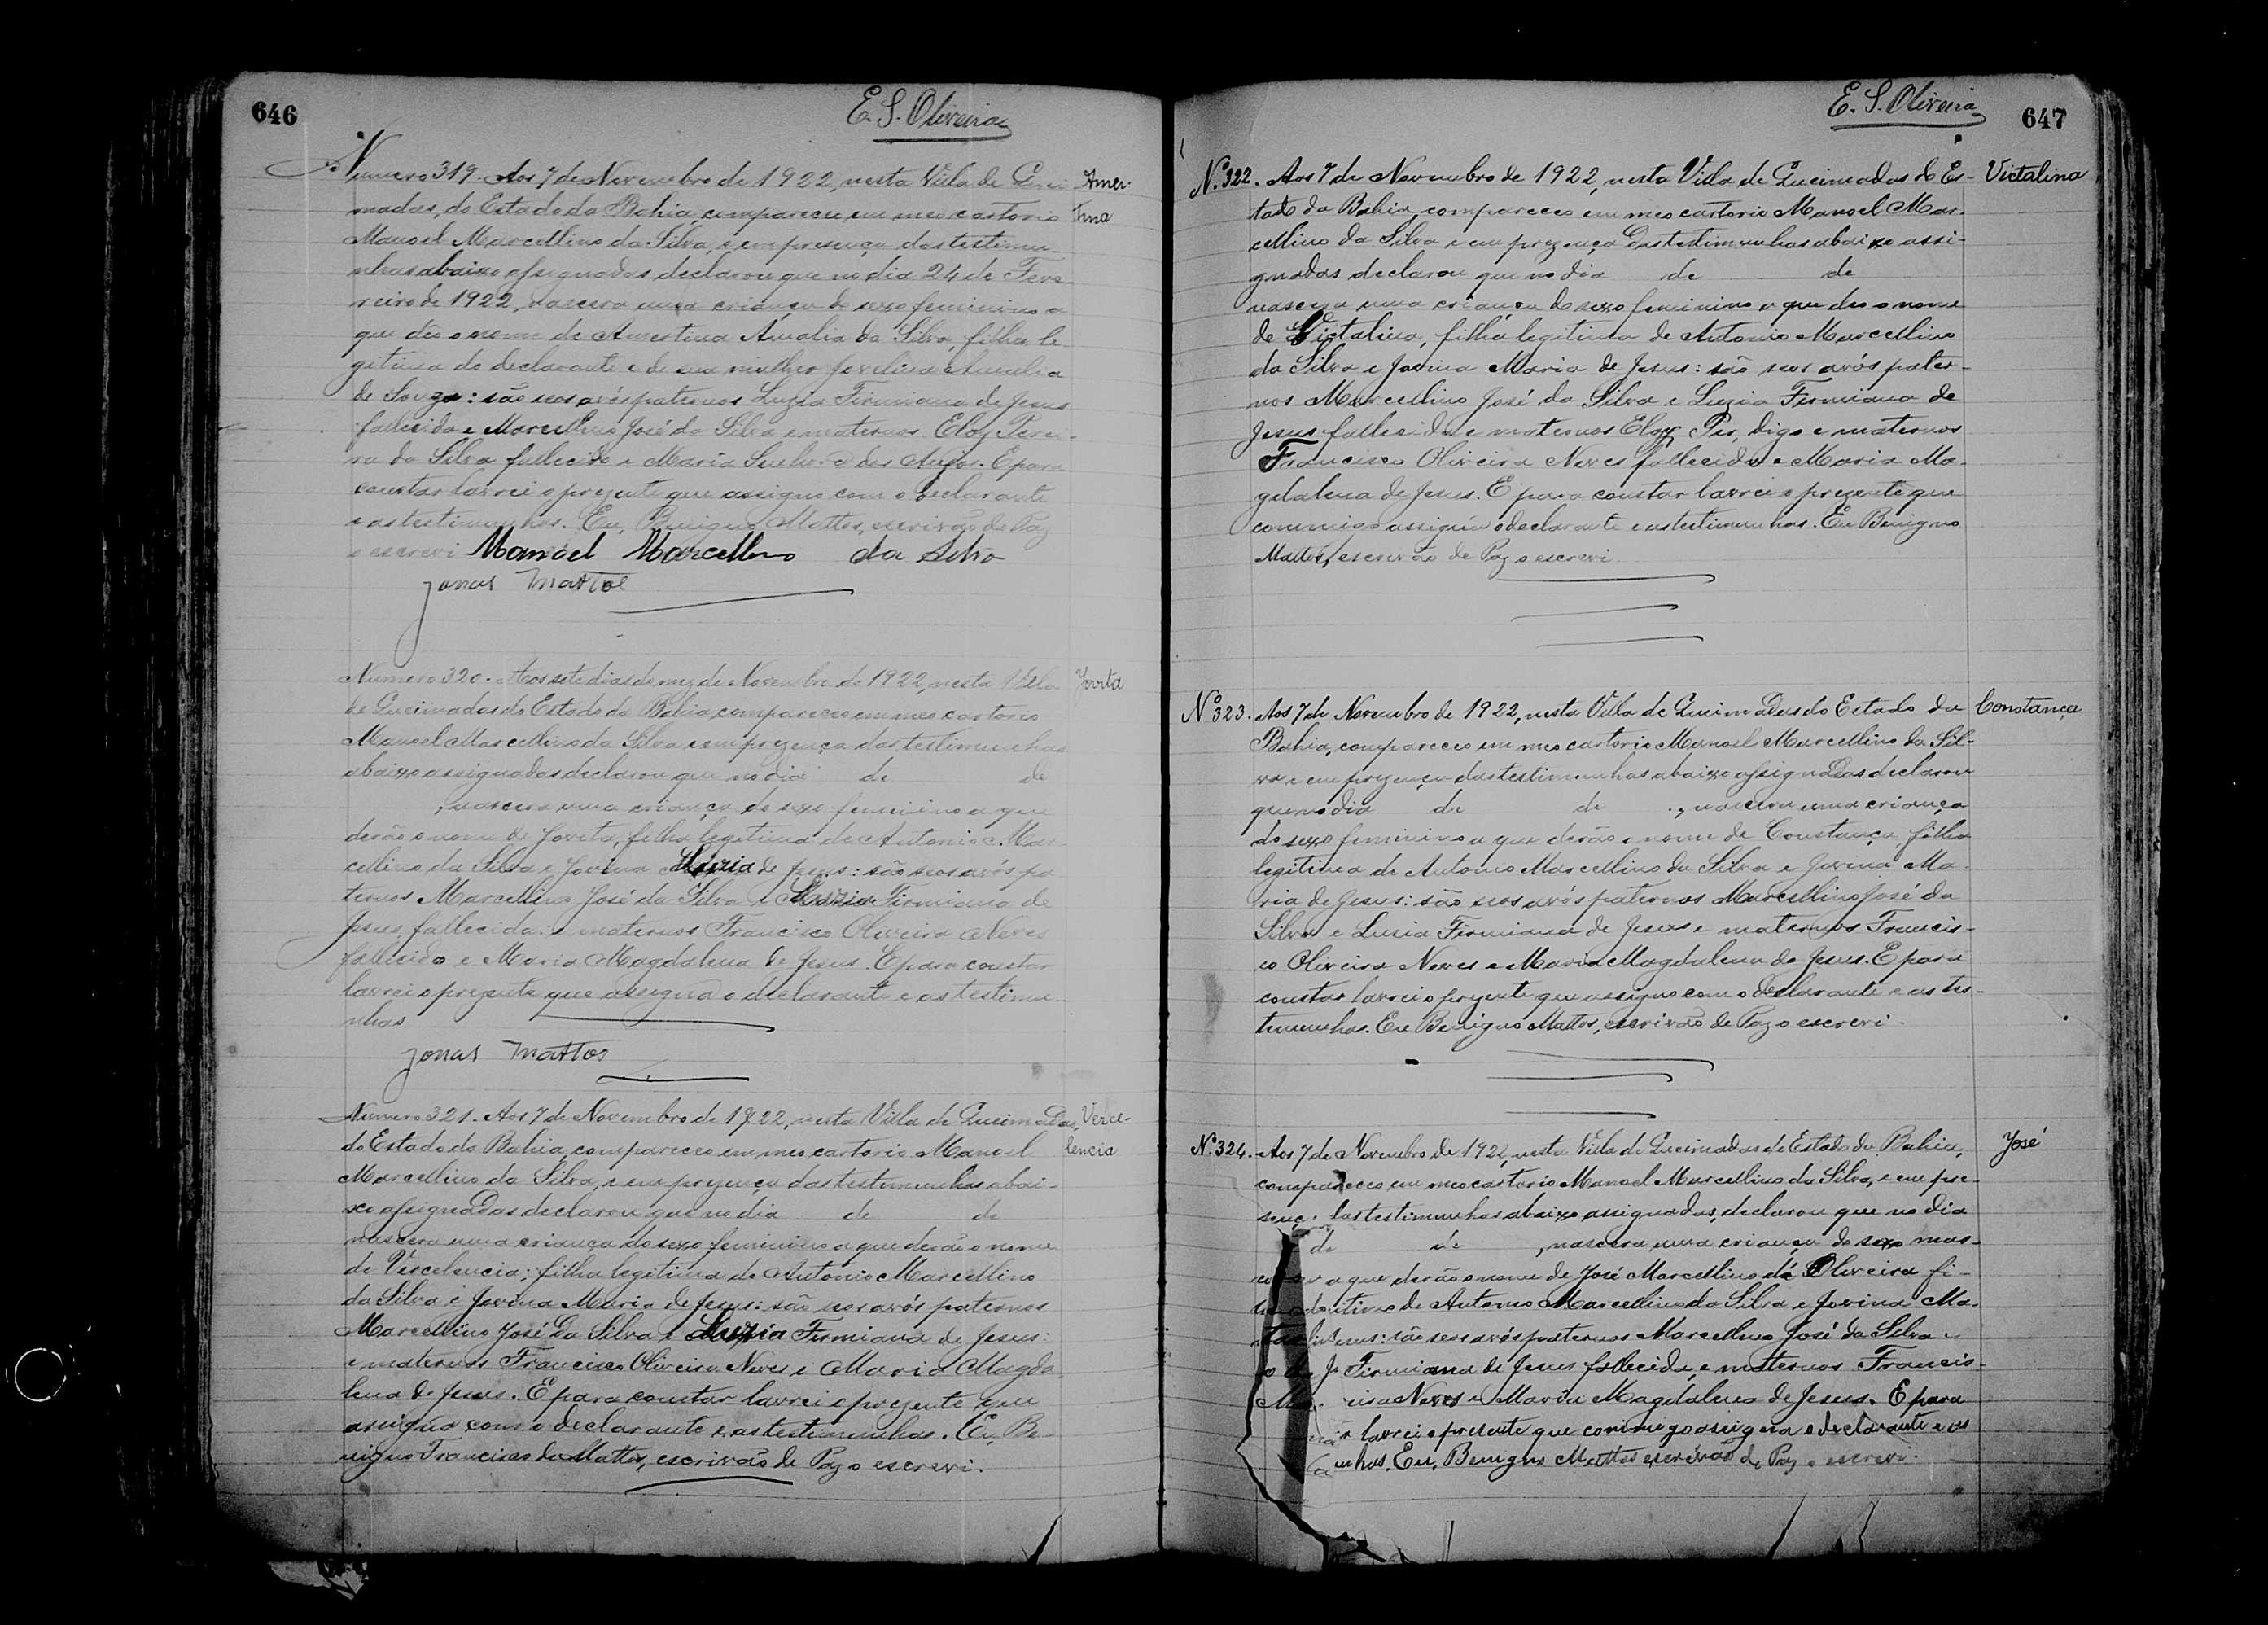 646
E. S. Oliveira
Numero 319. Aos 7 de Novembro de 1922, nesta Villa de Quei-
Amer-
madas, do Estado da Bahia, compareceu em meo cartorio
tina
Manoel Marcellino da Silva, e em presença das testimu-
nhas abaixo assignadas declarou que no dia 24 de Feve-
reiro de 1922, nascera uma criança do sexo feminino a
que deo o nome de Amertina Amalia da Silva, filha le-
gitima do declarante e de sua mulher Jovelina Amalia
de Souza: são seos avós paternos Luzia Firmiana de Jesus
fallecida e Marcellino José da Silva e maternos Eloy Perei-
ra da Silva fallecido e Maria Senhora dos Anjos. E para
constar lavrei o prezente que assigno com o declarante
e as testimunhas. Eu, Benigno Mattos, escrivão de Paz
o escrevi Manoel Marcellino da Silva
Jonas Mattos
Numero 320. Aos sete dias do mez de Novembro de 1922, nesta Villa
Jovita
de Queimadas do Estado da Bahia, compareceo em meo cartorio
Manoel Marcellino da Silva e em prezença das testimunhas
abaixo assignadas declarou que no dia de de
, nascera uma criança do sexo feminino a que
derão o nome de Jovita, filha legitima de Antonio Mar-
cellino da Silva e Jovina Maria de Jesus: são seos avós pa-
ternos Marcellino José da Silva e Luzia Firmiana de
Jesus, fallecida: e maternos Francisco Oliveira Neves
fallecido e Maria Magdalena de Jesus. E para constar
lavrei o prezente que assigna o declarante e as testimu-
nhas
Jonas Mattos
Numero 321. Aos 7 de Novembro de 1922, nesta Villa de Queimadas,
Verce-
do Estado da Bahia, compareceo em meo cartorio Manoel
lencia
Marcellino da Silva, e em prezença das testimunhas abai-
xo assignadas declarou que no dia de de
nascera uma criança do sexo feminino a que derão o nome
de Vercelencia; filha legitima de Antonio Marcellino
da Silva e Jovina Maria de Jesus: são seos avós paternos
Marcellino José da Silva e Luzia Firmiana de Jesus:
e maternos Francisco Oliveira Neves e Maria Magda-
lena de Jesus. E para constar lavrei o prezente que
assigna com o declarante e as testimunhas. Eu, Be-
nigno Francisco de Mattos, escrivão de Paz o escrevi.
E. S. Oliveira
647
Nº 322. Aos 7 de Novembro de 1922, nesta Villa de Queimadas do Es-
Victalina
tado da Bahia, compareceo em meo cartorio Manoel Mar-
cellino da Silva e em prezença das testimunhas abaixo assi-
gnadas declarou que no dia de de
nascera uma criança do sexo feminino a que deo o nome
de Victalina, filha legitima de Antonio Marcellino
da Silva e Jovina Maria de Jesus: são seos avós pater-
nos Marcellino José da Silva e Luzia Firmiana de
Jesus fallecida e maternos Eloy Per, digo e maternos
Francisco Oliveira Neves fallecido e Maria Ma-
gdalena de Jesus. E para constar lavrei o prezente que
commigo assigna o declarante e as testimunhas. Eu Benigno
Mattos, escrivão de Paz o escrevi
Nº 323. Aos 7 de Novembro de 1922, nesta Villa de Queimadas do Estado da
Constança
Bahia, compareceo em meo cartorio Manoel Marcellino da Sil-
va e em prezença das testimunhas abaixo assignadas declarou
que no dia de de , nascera uma criança
do sexo feminino a que derão o nome de Constança, filha
legitima de Antonio Marcellino da Silva e Jovina Ma-
ria de Jesus: são seos avós paternos Marcellino José da
Silva e Luzia Firmiana de Jesus e maternos Francis-
co Oliveira Neves e Maria Magdalena de Jesus. E para
constar lavrei o prezente que assigno com o declarante e as tes-
timunhas. Eu Benigno Mattos, escrivão de Paz o escrevi.
Nº 324. Aos 7 de Novembro de 1922, nesta Villa de Queimadas do Estado da Bahia,
José
compareceo em meo cartorio Manoel Marcellino da Silva, e em pre-
sença das testimunhas abaixo assignadas, declarou que no dia
de de , nascera uma criança do sexo mas-
a que derão o nome de José Marcellino de Oliveira fi-
de Antonio Marcellino da Silva e Jovina Ma-
Jesus: são seos avós paternos Marcellino José da Silva e
Firmiana de Jesus fallecida, e maternos Francis-
Neves e Maria Magdalena de Jesus. E para
lavrei o presente que commigo assigna o declarante e as
nhas. Eu, Benigno Mattos escrivão de Paz o escrevi.